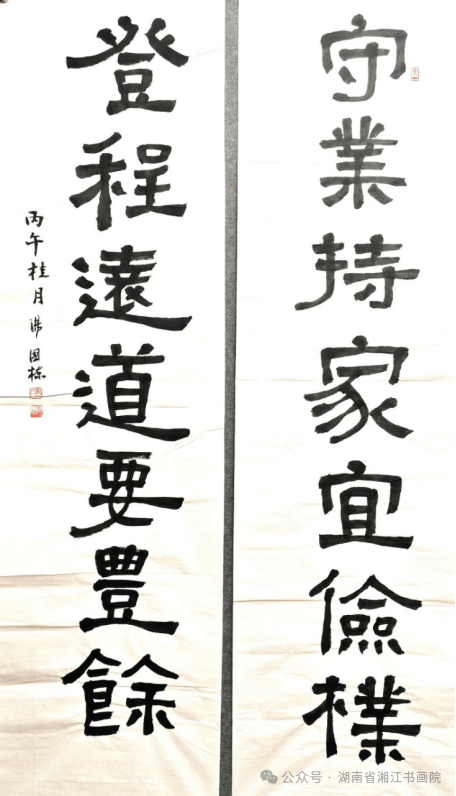 守業持家宜儉樸
登程遠道要豐餘
丙午桂月湯國栋
公众号·湖南省湘江书画院